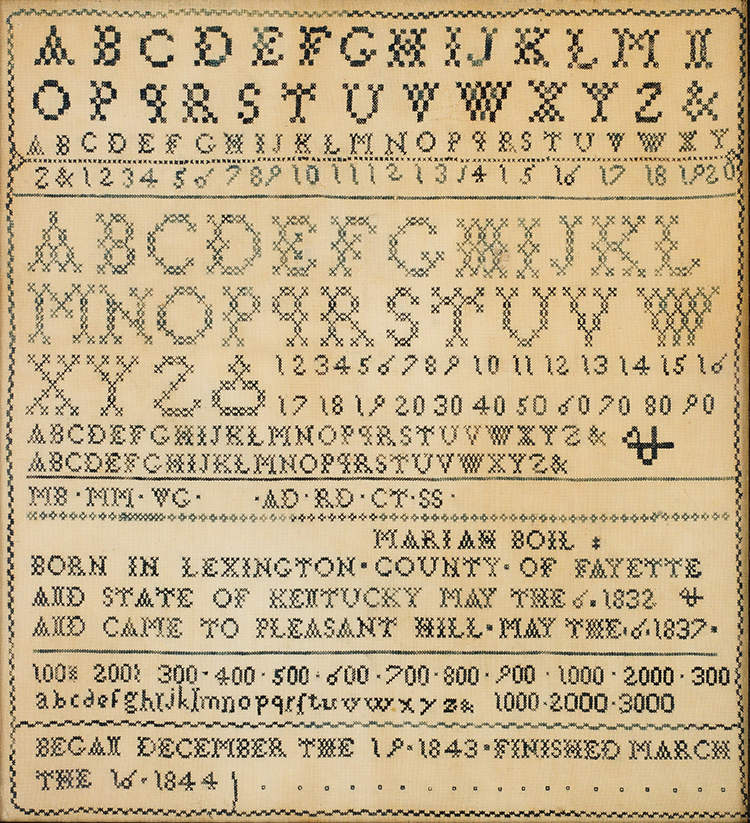 A B C D E F G H I J K L M N
O P Q R S T U V W X Y Z &
A B C D E F G H I J K L M N O P Q R S T U V W X Y
Z & 1 2 3 4 5 6 7 8 9 10 11 12 13 14 15 16 17 18 19 20
A B C D E F G H I J K L
M N O P Q R S T U V W
X Y Z & 1 2 3 4 5 6 7 8 9 10 11 12 13 14 15 16
17 18 19 20 30 40 50 60 70 80 90
A B C D E F G H I J K L M N O P Q R S T U V W X Y Z &
A B C D E F G H I J K L M N O P Q R S T U V W X Y Z &
MB · MM · WG · · AD · RD · CT · SS ·
MARIAN BOIL :
BORN IN LEXINGTON · COUNTY · OF FAYETTE
AND STATE OF KENTUCKY MAY THE 6 . 1832
AND CAME TO PLEASANT HILL · MAY THE · 6 · 1837 ·
100 200 300 · 400 · 500 · 600 · 700 · 800 · 900 · 1000 · 2000 · 300
a b c d e f g h i j k l m n o p q r ſ t u v w x y z & 1000 · 2000 · 3000
BEGAN DECEMBER THE 19 · 1843 · FINISHED MARCH
THE 16 · 1844